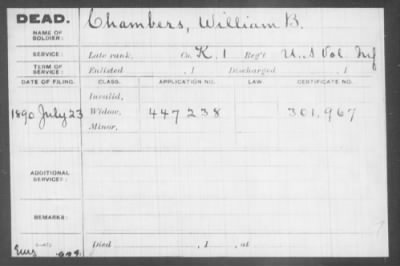 DEAD. Chambers, William B.
NAME OF SOLDIER:
SERVICE: Late rank, Co. K, 1 Reg't U.S Vol Inf
TERM OF SERVICE: Enlisted , 1 Discharged , 1
DATE OF FILING. CLASS. APPLICATION NO. LAW. CERTIFICATE NO.
Invalid,
1890 July 23 Widow, 447238 301,967
Minor,
ADDITIONAL SERVICES:
REMARKS:
Died , 1 , at